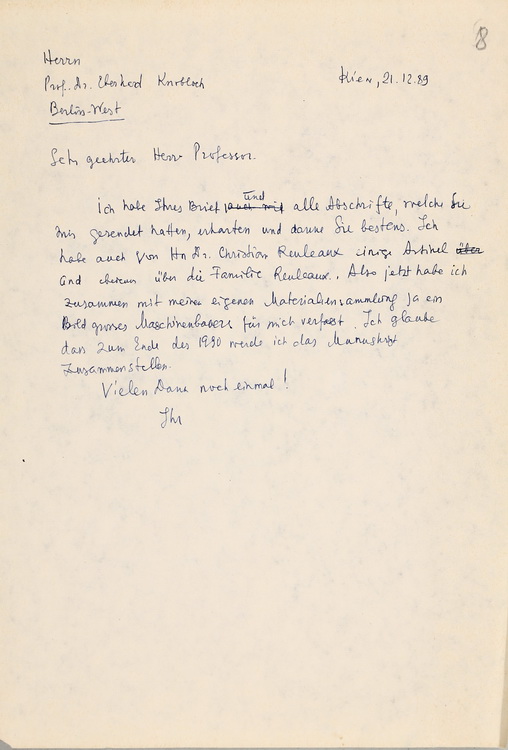 8
Herrn
Prof. Dr. Eberhard Knobloch
Kiew, 21.12.89
Berlin-West
Sehr geehrter Herr Professor.
Ich habe Ihres Brief und alle Abschrifte, welche Sie
mir gesendet hatten, erhalten und danke Sie bestens. Ich
habe auch von Hn Dr. Christian Reuleaux einige Artikel über
und über die Familie Reuleaux. Also jetzt habe ich
zusammen mit meiner eigenen Materialiensammlung ja ein
Bild grosses Maschinenbauers für mich verfasst. Ich glaube
dass zum Ende des 1990 werde ich das Manuskript
zusammenstellen.
Vielen Dank noch einmal!
Ihr